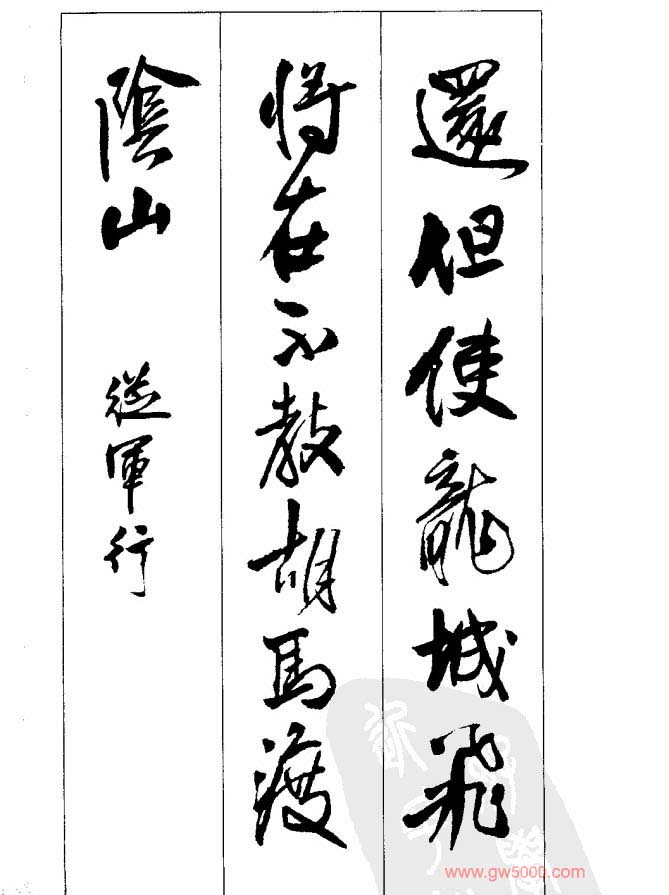 還但使龍城飛
將在不教胡馬渡
陰山
從軍行
www.gw5000.com